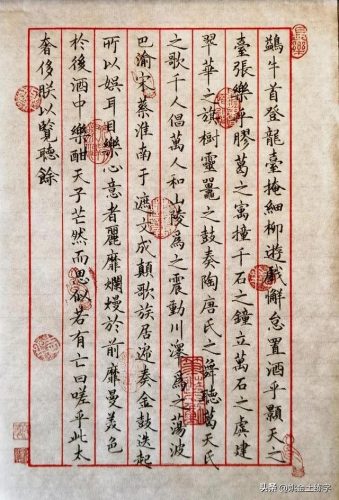 鷁牛首登龍臺掩細柳遊戲懈怠置酒乎顥天之
臺張樂乎膠葛之寓撞千石之鐘立萬石之虡建
翠華之旗樹靈鼉之鼓奏陶唐氏之舞聽葛天氏
之歌千人倡萬人和山陵為之震動川澤為之蕩波
巴渝宋蔡淮南于遮文成顛歌族居遞奏金鼓迭起
所以娛耳目樂心意者麗靡爛熳於前靡曼美色
於後酒中樂酣天子芒然而思似若有亡曰嗟乎此太
奢侈朕以覽聽餘
头条 @姚金土练字